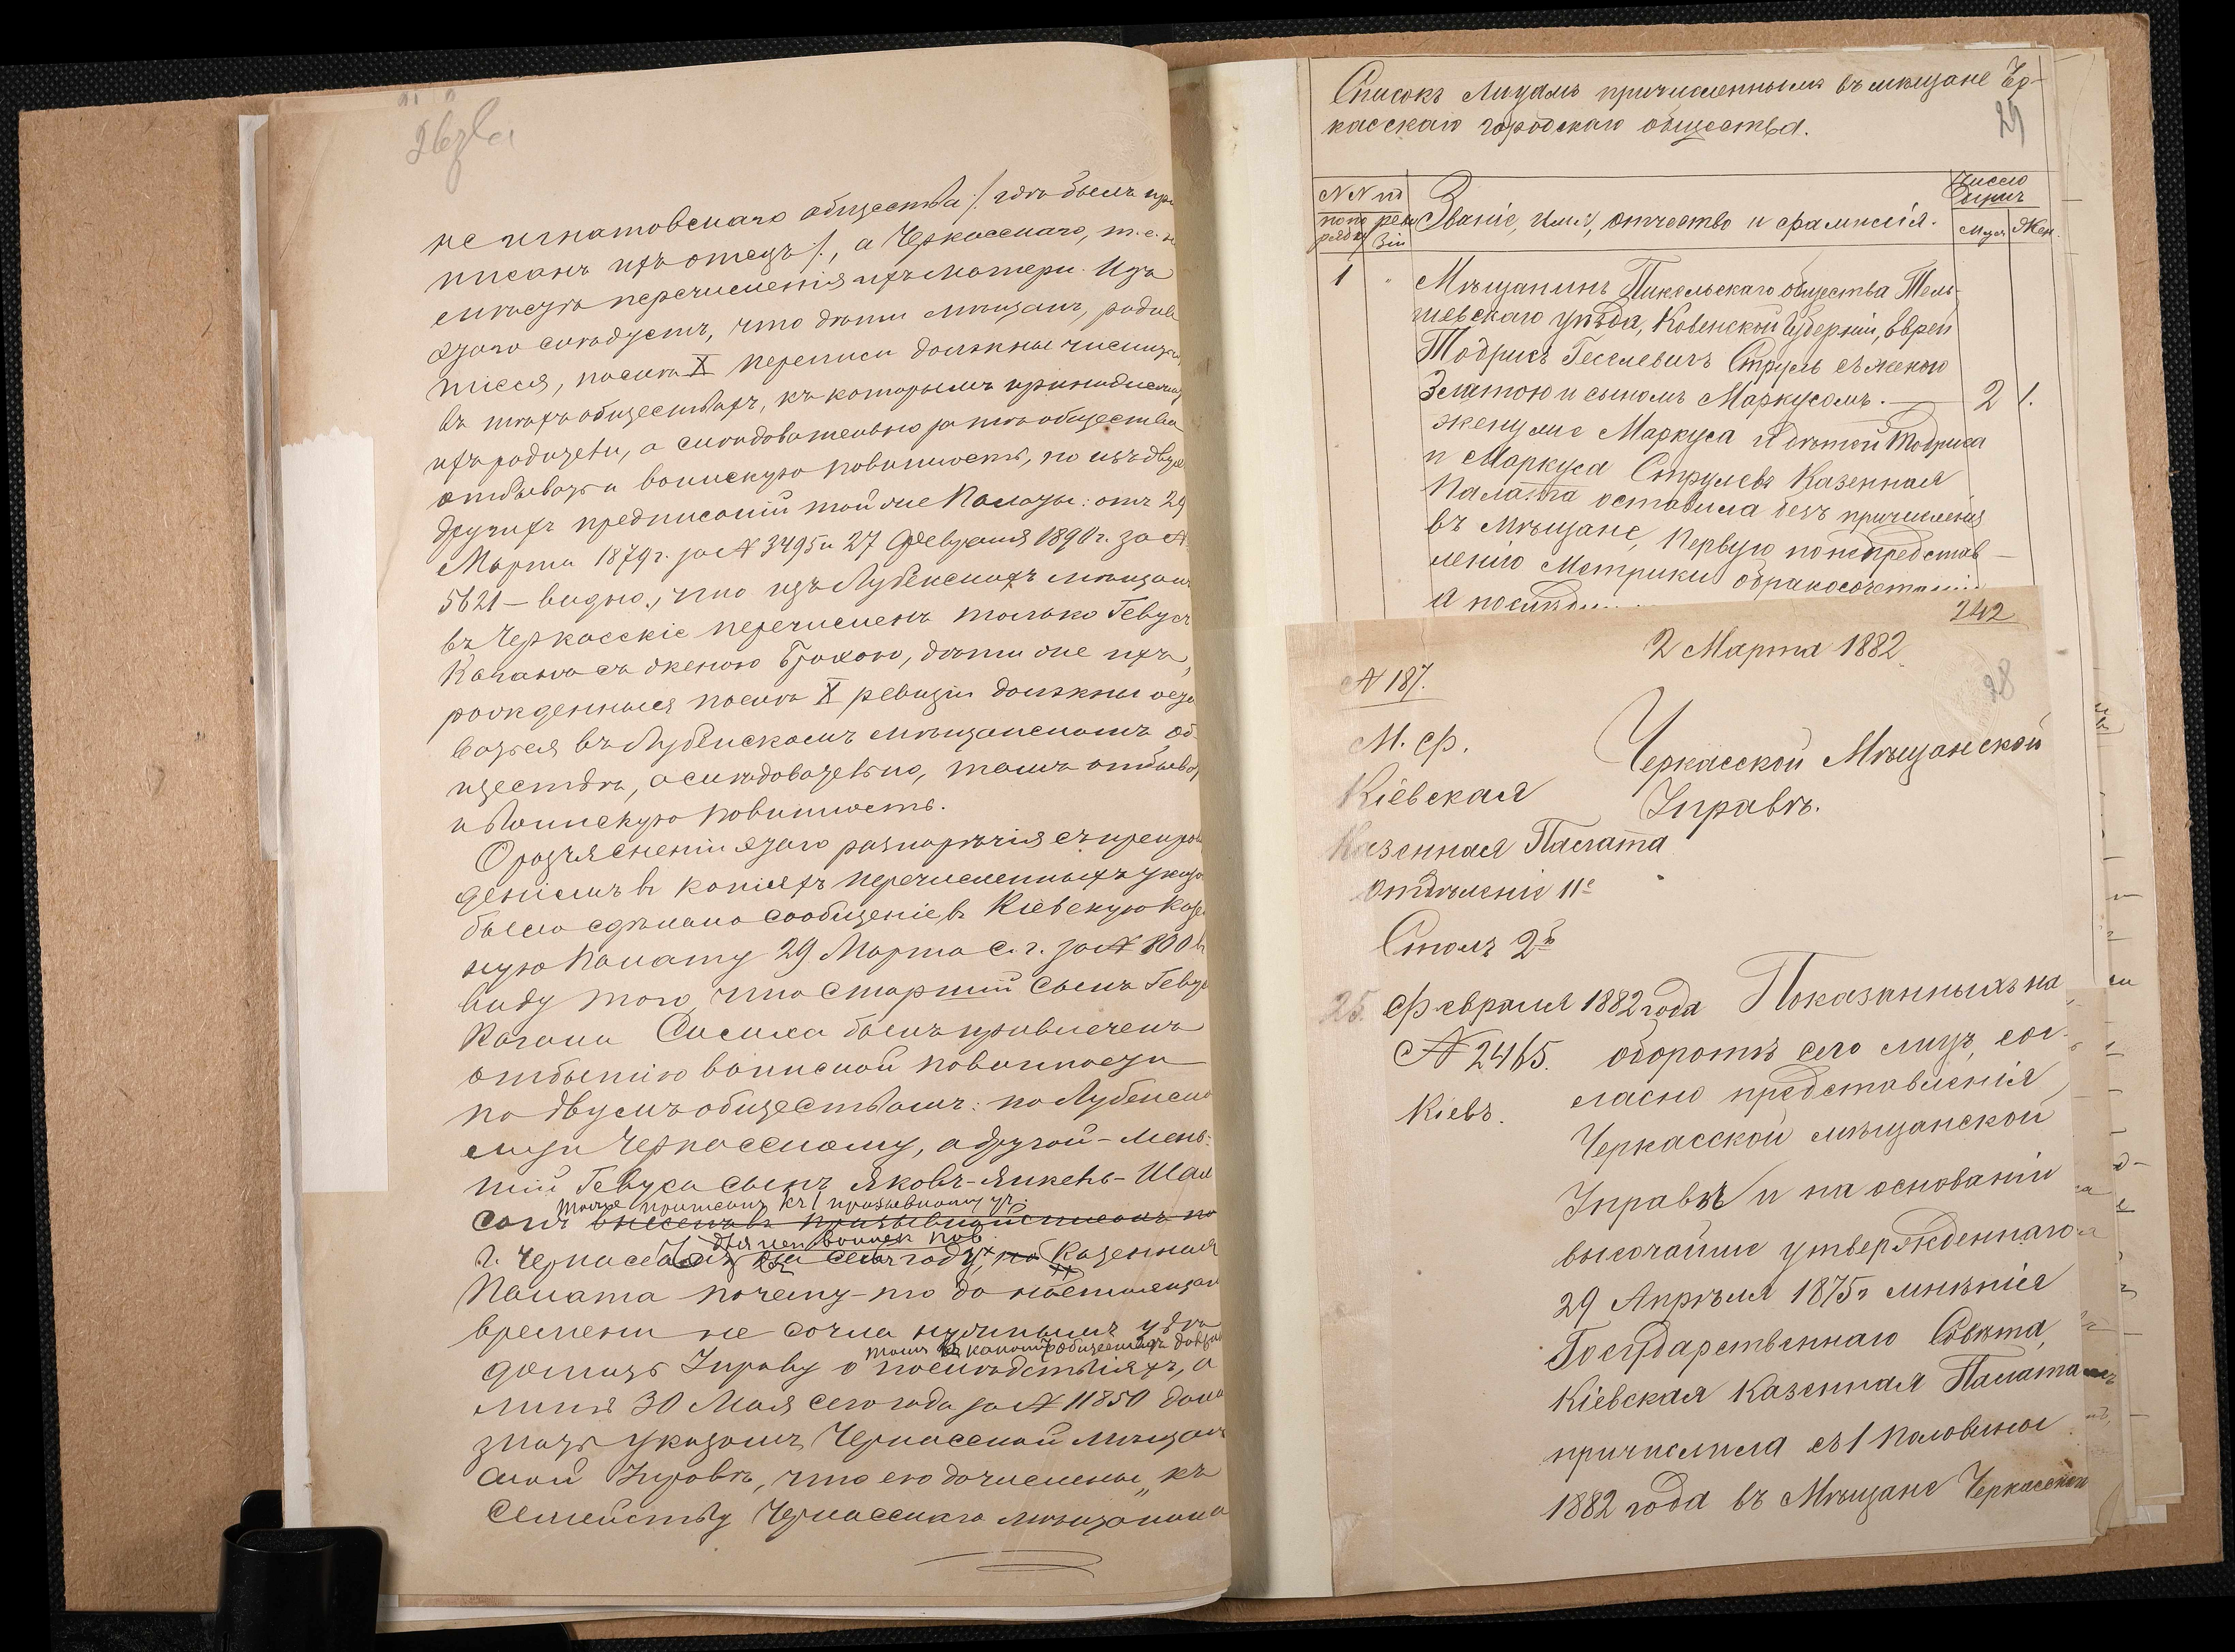 26 зв
не игнатовскаго общества /: гдѣ былъ при
писанъ ихъ отецъ :/, а Черкасскаго, т. е. п
слѣ перечисленія ихъ матери. Изъ
этого слѣдуетъ, что дѣти мѣщанъ, родив
шіеся, послѣ X переписи должны числиться
въ тѣхъ обществахъ, къ которымъ принадлежатъ
ихъ родители, а слѣдовательно за тѣ общества
отбывать и воинскую повинность, но изъ двухъ
другихъ предписаній той же Палаты: отъ 29
Марта 1879 г. за № 3495 и 27 Февраля 1890 г. за №
5621 – видно, что изъ Лубенскихъ мѣщанъ
въ Черкасскіе перечисленъ только Гевуся
Каганъ съ женою Брохою, дѣти же ихъ,
рожденныя послѣ X ревизіи должны оста
ваться въ Лубенскомъ мѣщанскомъ об
ществѣ, а слѣдовательно, тамъ отбывать
и воинскую повинность.
О разъясненіи этого разнорѣчія съ препрово
деніемъ въ копіяхъ перечисленныхъ указо
было сдѣлано сообщеніе въ Кіевскую Казен
ную Палату 29 Марта с. г. за № 800 въ
виду того, что старшій сынъ Гевуси
Кагана Сисиха былъ привлеченъ
отбытію воинской повинности
по двумъ обществамъ: по Лубенско
му и Черкасскому, а другой – мень-
шій Гевуси сынъ Яковъ-Янкель-Шам
также приписанъ къ 1 призывному уч.
сонъ внесенъ въ призывной списокъ по
для исп. воинск. пов.
г. Черкассамъ въ семъ году, но Казенная
Палата почему-то до настоящаго
времени не сочла нужнымъ увѣ
домить Управу о послѣдствіяхъ, а
лишь 30 Мая сего года за № 11850 дала
знать указомъ Черкасской Мѣщан
ской Управѣ, что его дочислены „къ
семейству Черкасскаго мѣщанина
Списокъ лицамъ причисленнымъ въ мѣщане Чер-
касскаго городскаго общества.
29
№№ по
по по
рядку
реви
зіи
Званіе, имя, отчество и фамилія.
Число
душъ
Муж.
Жен.
1
"
Мѣщанинъ Пикельскаго общества Тель-
шевскаго уѣзда, Ковенской Губерніи, Еврей
Тодрисъ Геселевичъ Струль съ женою
Златою и сыномъ Маркусомъ. — 2 1.
жену же Маркуса и дѣтей Тодриса
и Маркуса Струлевъ Казенная
Палата оставила безъ причисленія
въ мѣщане, первую по непредстав-
ленію метрики о бракосочетаніи
а послѣдн
242
2 Марта 1882
28
№ 187.
М. Ф.
Кіевская
Казенная Палата
Отдѣленіе 11е
Столъ 2й
25 Февраля 1882 года
№ 2465.
Кіевъ.
Черкасской Мѣщанской
Управѣ.
Показанныхъ на
оборотѣ сего лицъ, сог-
ласно представленія
Черкасской мѣщанской
Управы и на основаніи
высочайше утвержденнаго
29 Апрѣля 1875 г. мнѣнія
Государственнаго Совѣта,
Кіевская Казенная Палата
причислила съ 1 половины
1882 года въ Мѣщане Черкасской